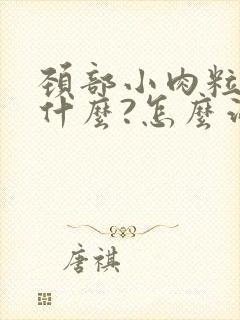 頸部小肉粒
什麼?怎麼
唐祺